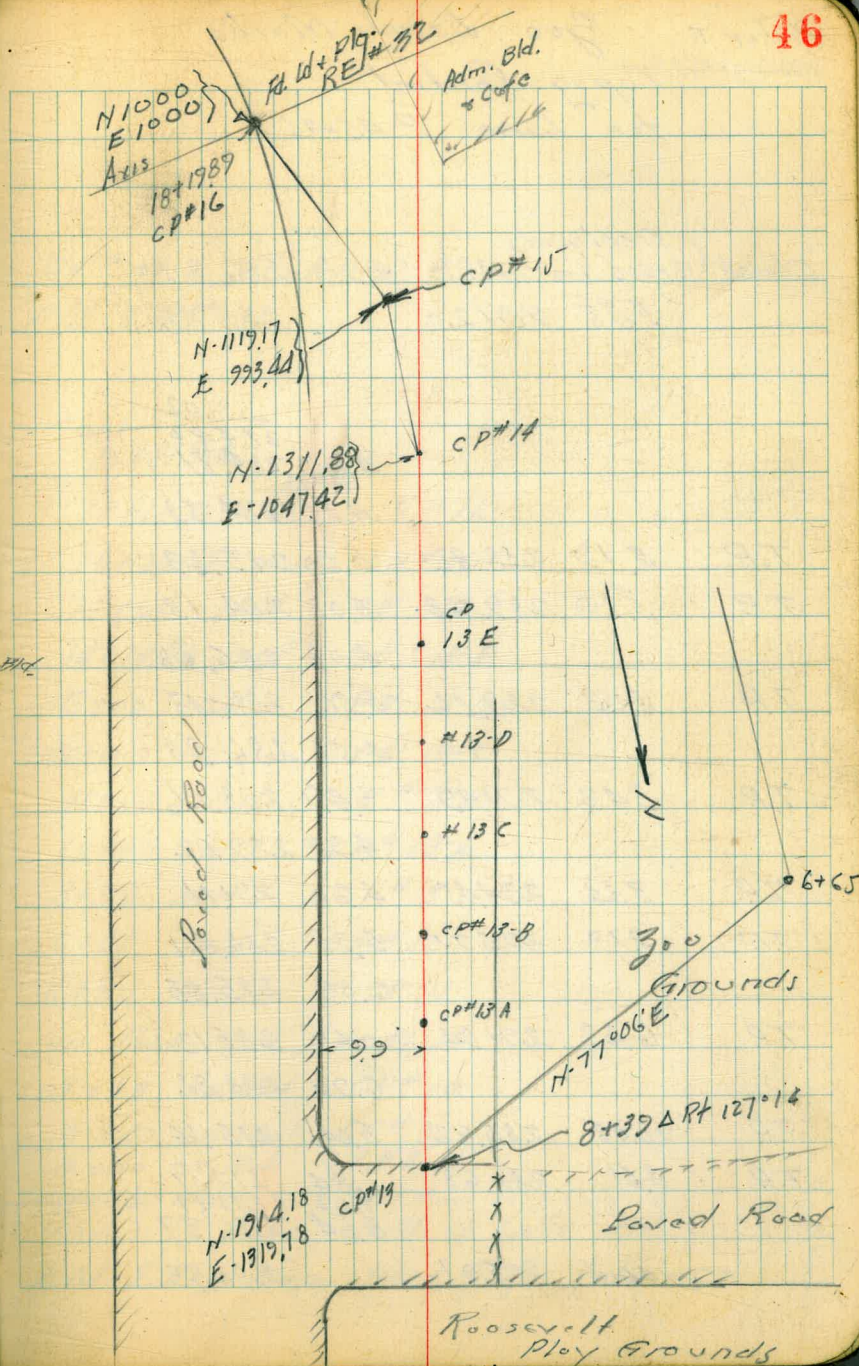 46
Fd. Ld + Plg.
RE #32
Adm. Bld.
& Cafe
N 1000
E 1000
Axis
18+1989
CP#16
CP#15
N-1119.17
E 993.44
CP#14
N-1311.88
E-1047.42
CP
13 E
#13-D
#13 C
CP#13-B
CP#13 A
Bld.
Paved Road
N
6+65
Zoo
Grounds
N-77°06'E
9.9
8+39 Δ Rt 127°16
CP#13
N-1914.18
E-1319.78
x
x
x
x
Paved Road
Roosevelt
Play Grounds